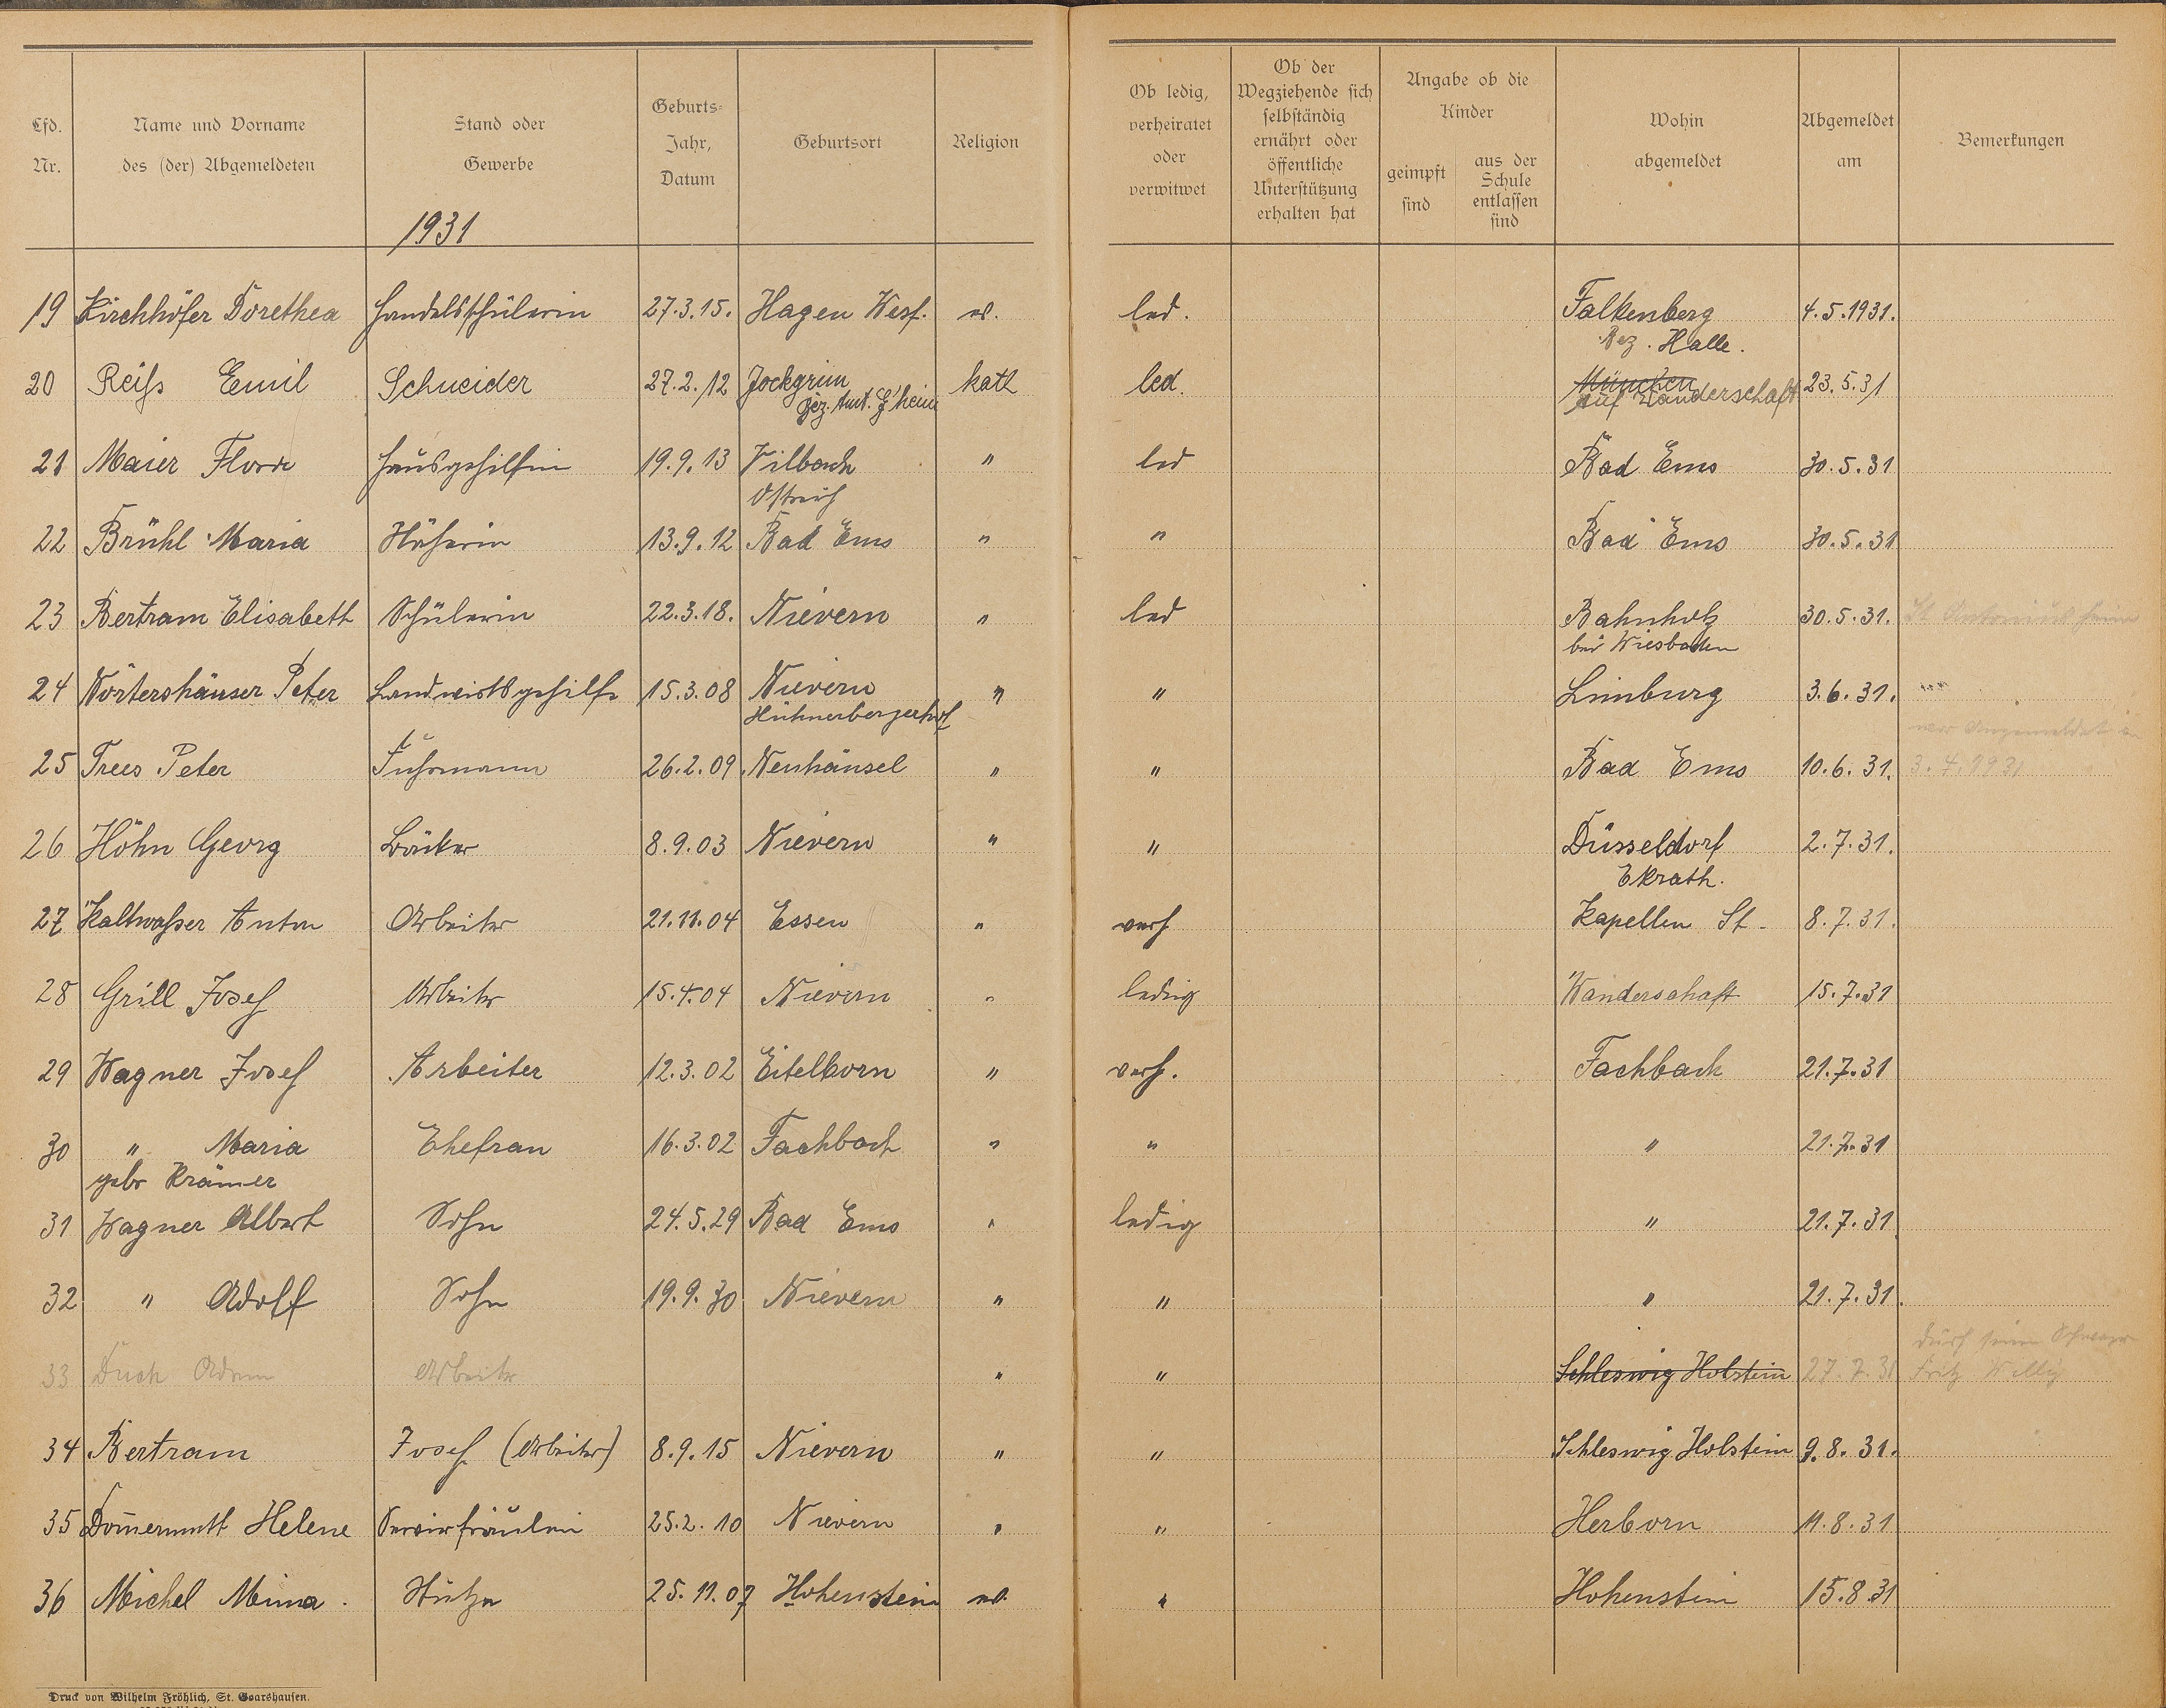 Lfd. Nr.
Name und Vorname des (der) Abgemeldeten
Stand oder Gewerbe
Geburts-Jahr, Datum
Geburtsort
Religion
Ob ledig, verheiratet oder verwitwet
Ob der Wegziehende sich selbständig ernährt oder öffentliche Unterstützung erhalten hat
Angabe ob die Kinder
geimpft sind
aus der Schule entlassen sind
Wohin abgemeldet
Abgemeldet am
Bemerkungen
1931
19 Kirchhöfer Dorethea Handelsschülerin 27.3.15. Hagen Wesf. ev. led. Falkenberg 4.5.1931.
Bez. Halle.
20 Reiß Emil Schneider 27.2.12 Jockgrim kath led. München 23.5.31
Bez. Amt. G'heim auf Wanderschaft
21 Maier Flora Hausgehilfin 19.9.13 Vilbach " led Bad Ems 30.5.31
Östreich
22 Brühl Maria 13.9.12 Bad Ems " " Bad Ems 30.5.31
23 Bertram Elisabeth Schülerin 22.3.18. Nievern " led Bahnholz 30.5.31. St Antonius heim
bei Wiesbaden
24 Nörtershäuser Peter Landwirtsgehilfe 15.3.08 Nievern " " Limburg 3.6.31.
Hühnerbergerhof
war Angemeldet am
25 Trees Peter Fuhrmann 26.2.09 Neuhäusel " " Bad Ems 10.6.31. 3.4.1931
26 Höhn Georg Bäcker 8.9.03 Nievern " " Düsseldorf 2.7.31.
Ekrath.
27 Kaltwaßer Anton Arbeiter 21.11.04 Essen " verh Kapellen St. 8.7.31.
28 Grill Josef Arbeiter 15.4.04 Nievern " ledig Wanderschaft 15.7.31
29 Wagner Josef Arbeiter 12.3.02 Eitelborn " verh. Fachbach 21.7.31
30 " Maria Ehefrau 16.3.02 Fachbach " " " 21.7.31
gebr Krämer
31 Wagner Albert Sohn 24.5.29 Bad Ems " ledig " 21.7.31
32 " Adolf Sohn 19.9.30 Nievern " " " 21.7.31.
durch seinen Schwager
33 Duch Adam Arbeiter " " Schleswig Holstein 27.7.31 Fritz Willy
34 Bertram Josef (Arbeiter) 8.9.15 Nievern " " Schleswig Holstein 9.8.31.
35 Dom̄ermuth Helene Servierfräulein 25.2.10 Nievern " " Herborn 11.8.31
36 Michel Minna. 25.11.07 Hohenstein ev. " Hohenstein 15.8.31
Druck von Wilhelm Fröhlich, St. Goarshausen.